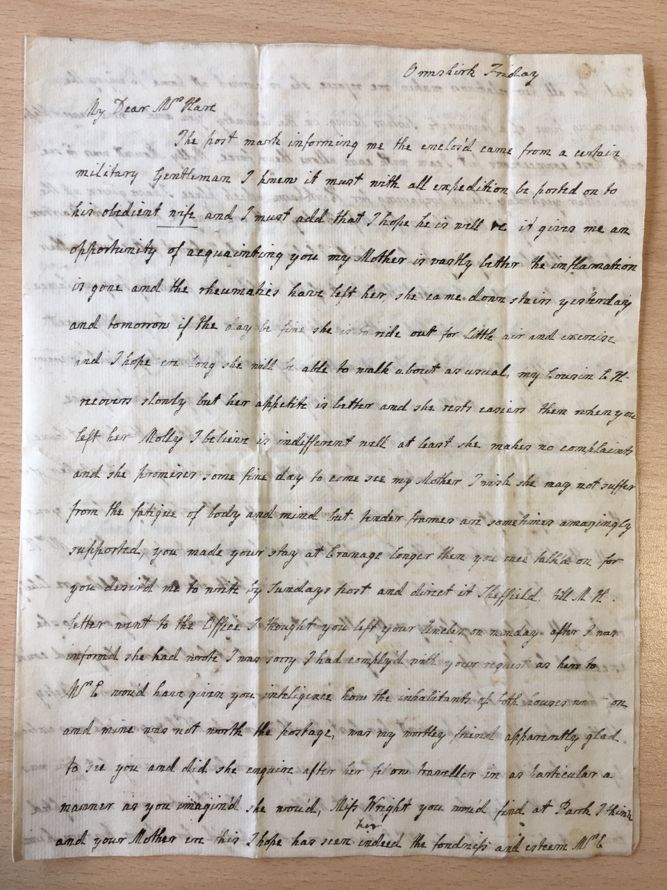 Ormskirk Friday
My Dear Mrs Hare
The post mark informing me the enclos'd came from a certain
military Gentleman I knew it must with all expedition be posted on to
his obedient wife and I must add that I hope he is well it gives me an
opportunity of acquainting you my Mother is vastly better the inflamation
is gone and the rheumatics have left her, she came down stairs yesterday
and tomorrow if the day be fine she is to ride out for little air and exercise
and I hope ere long she will be able to walk about as usual, my Cousin E H
recovers slowly but her appetite is better and she rests easier then when you
left her Molly I believe is indifferent well at least she makes no complaints
and she promises some fine day to come see my Mother I wish she may not suffer
from the fatigue of body and mind but tender frames are sometimes amazingly
supported, you made your stay at Cranage longer then you once talk'd on for
you desired me to write by Sundays post and direct it Sheffield till M H.
letter went to the Office I thought you left your Uncles on monday after I was
informd she had wrote I was sorry I had comply'd with your request as hers to
Mrs E wou'd have given you inteligence how the inhabitants of both houses went on
and mine was not worth the postage, was my worthy friend apparently glad
to see you and did she enquire after her fellow traveller in as particular a
manner as you imagin'd she wou'd, Miss Wright you wou'd find at Park I think
and your Mother ere this I hope has seen her indeed the fondness and esteem Mrs E